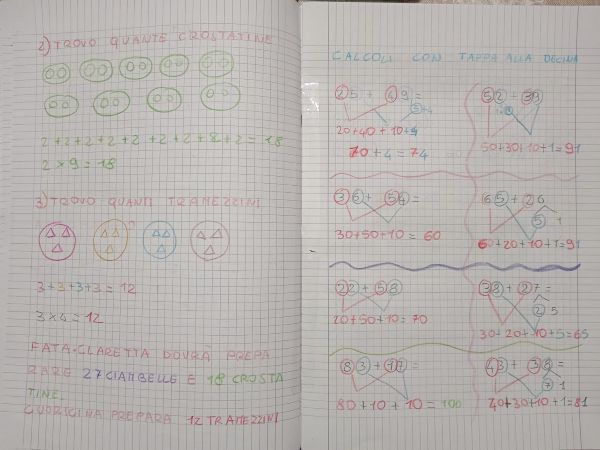 2) TROVO QUANTE CROSTATINE
2+2+2+2+2+2+2+2+2=18
2×9=18
3) TROVO QUANTI TRAMEZZINI
3+3+3+3=12
3×4=12
FATA CLARETTA DOVRÀ PREPA
RARE 27 CIAMBELLE E 18 CROSTA
TINE.
CUORICINA PREPARA 12 TRAMEZZINI
CALCOLI CON TAPPA ALLA DECINA
25+49=
5+4
20+40+10+4
70+4=74
52+39
50+30+10+1=91
36+54=
30+50+10=60
65+26
5 1
60+20+10+1=91
22+58
20+50+10=70
38+27=
2 5
30+20+10+5=65
83+17=
80+10+10=100
43+38=
7 1
40+30+10+1=81